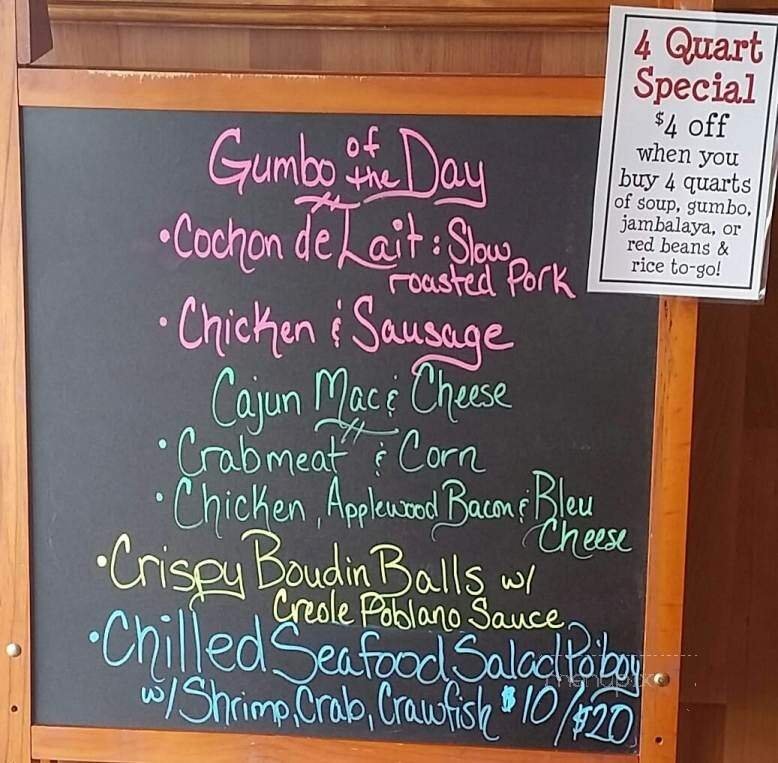 Gumbo of the Day
•Cochon de Lait : Slow
roasted Pork
•Chicken & Sausage
Cajun Mac & Cheese
•Crabmeat & Corn
•Chicken, Applewood Bacon & Bleu
Cheese
•Crispy Boudin Balls w/
Creole Poblano Sauce
•Chilled Seafood Salad Po'boy
w/ Shrimp, Crab, Crawfish $10/$20
4 Quart
Special
$4 off
when you
buy 4 quarts
of soup, gumbo,
jambalaya, or
red beans &
rice to-go!